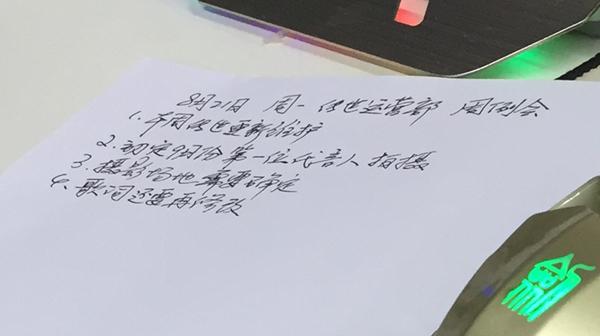 8月21日 周一 传世运营部 周例会
1. 本周传世更新维护
2. 初定9月份第一位代言人拍摄
3. 摄影场地需要确定
4. 歌词还要再修改